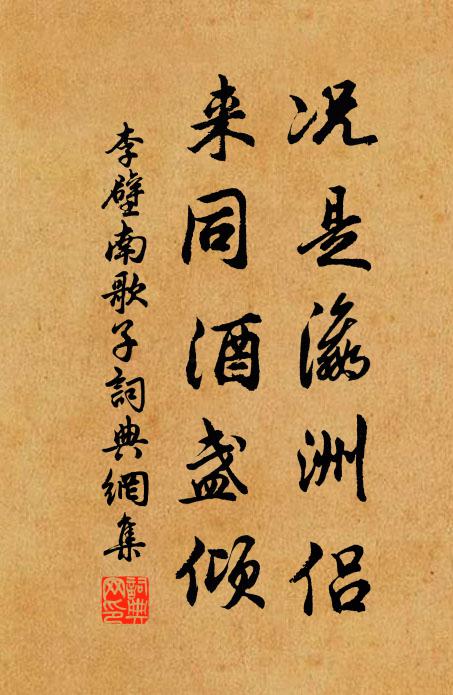 况是瀛洲侣
来同酒盏倾
李壁南歌子詞典網集
詞典網印